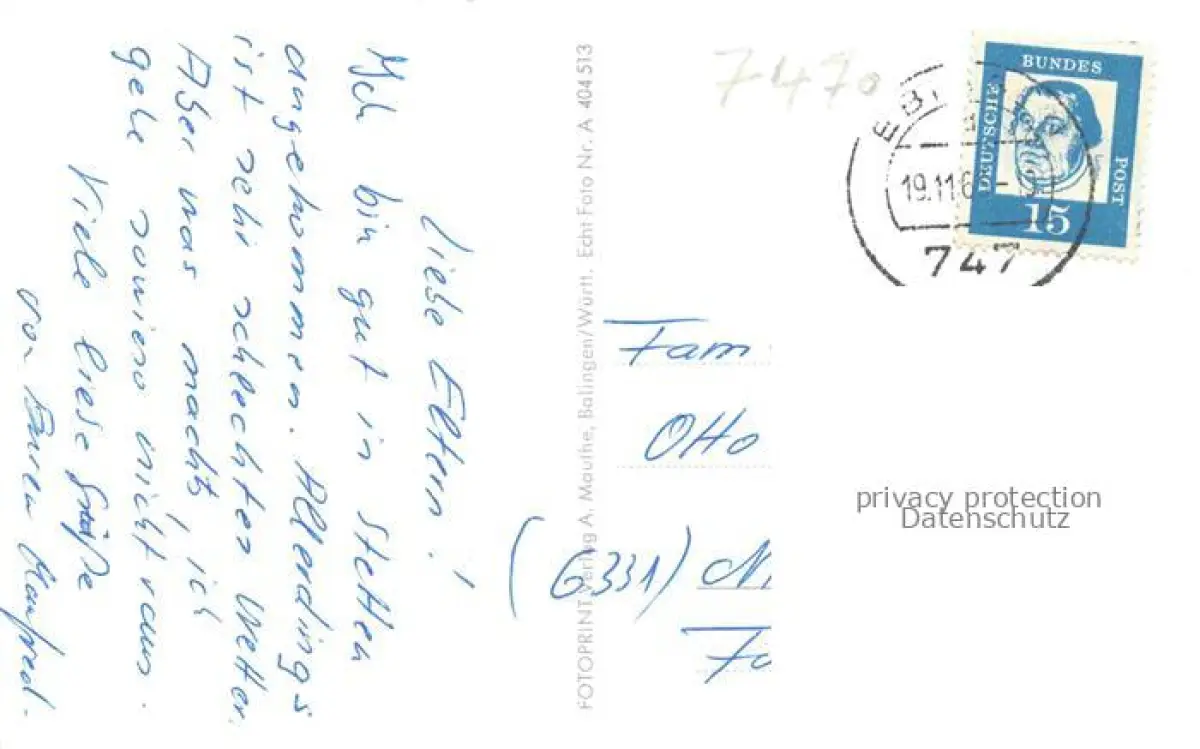 Liebe Eltern!
Ich bin gut in Stetten
angekommen. Allerdings
ist sehr schlechtes Wetter.
Aber was macht's, ich
gehe sowieso nicht raus.
Viele liebe Grüße
von Eurem Manfred.
FOTOPRINT Verlag A. Mauthe, Balingen/Württ. Echt Foto Nr. A 404513
7470
DEUTSCHE
BUNDES
POST
15
19.11.6
747
Fam
Otto
(6331)
privacy protection
Datenschutz